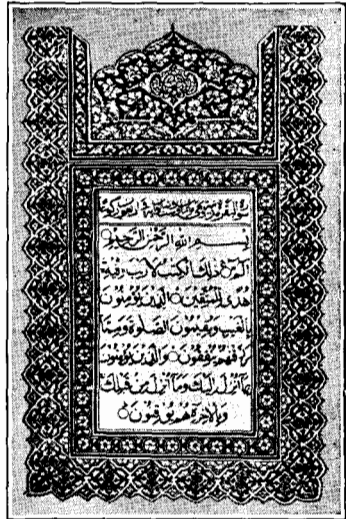 بسم الله الرحمن الرحيم
الم ذلك الكتب لا ريب فيه
هدى للمتقين الذين يؤمنون
بالغيب ويقيمون الصلوة ومما
رزقنهم ينفقون والذين يؤمنون
بما أنزل إليك وما أنزل من قبلك
وبالآخرة هم يوقنون